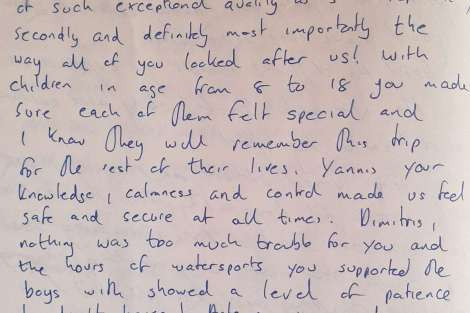 of such exceptional quality as
secondly and definitely most importantly the
way all of you looked after us! With
children in age from 8 to 18 you made
sure each of them felt special and
I know they will remember this trip
for the rest of their lives. Yannis your
knowledge, calmness and control made us feel
safe and secure at all times. Dimitris,
nothing was too much trouble for you and
the hours of watersports you supported the
boys with showed a level of patience